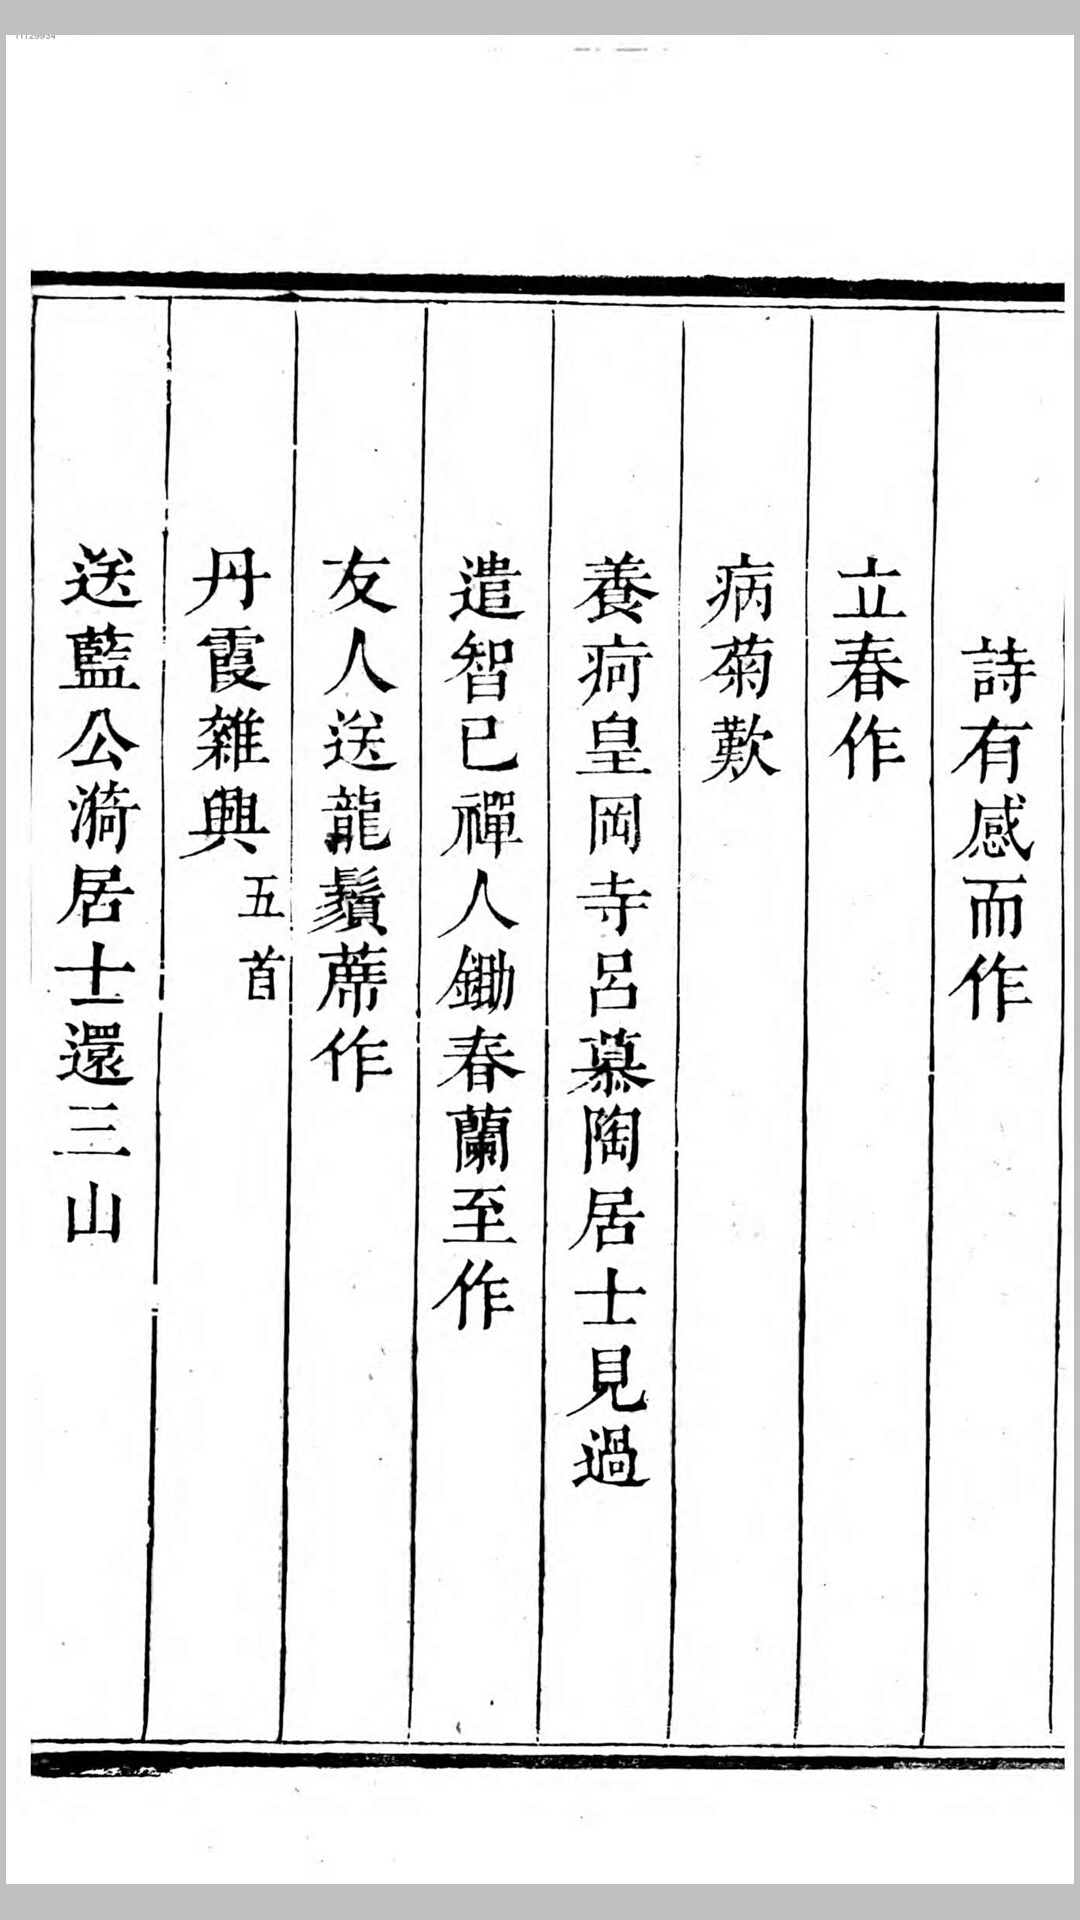 詩有感而作
立春作
病菊歎
養疴皇岡寺呂慕陶居士見過
遣智已禪人鋤春蘭至作
友人送龍鬚蓆作
丹霞雜興五首
送藍公漪居士還三山